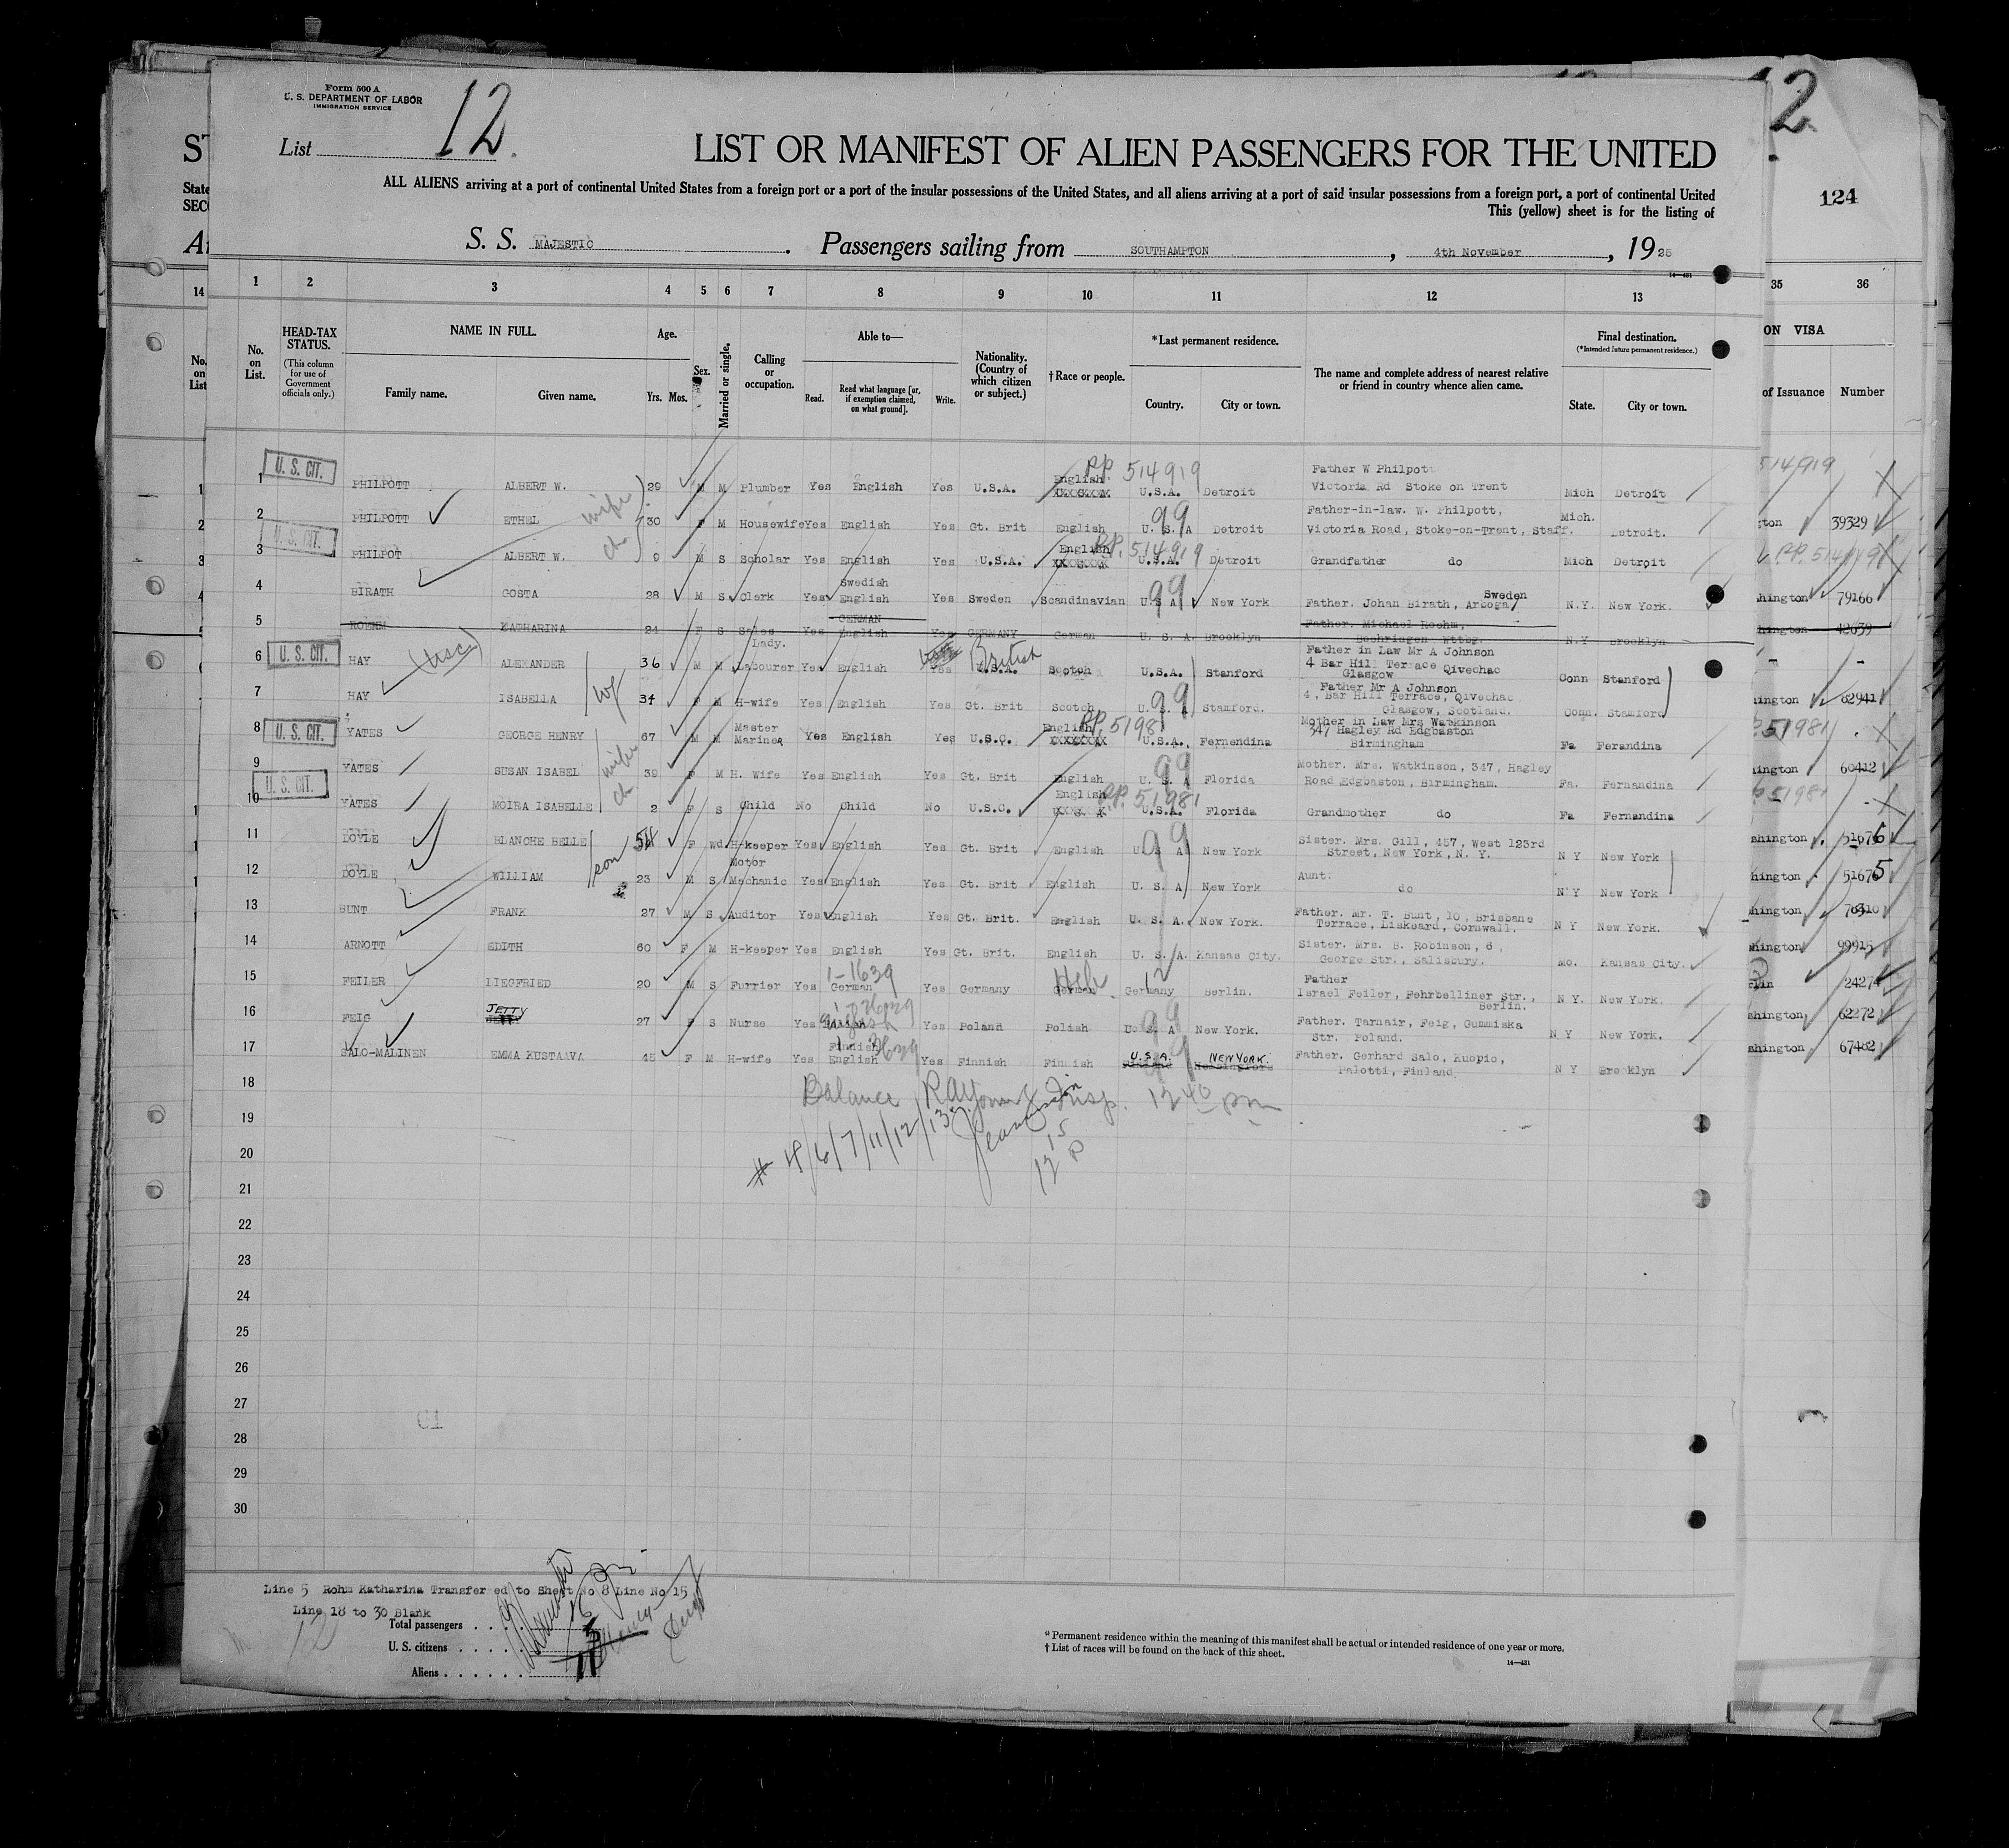 Form 500 A
U. S. DEPARTMENT OF LABOR
IMMIGRATION SERVICE
List 12.
LIST OR MANIFEST OF ALIEN PASSENGERS FOR THE UNITED
ALL ALIENS arriving at a port of continental United States from a foreign port or a port of the insular possessions of the United States, and all aliens arriving at a port of said insular possessions from a foreign port, a port of continental United
This (yellow) sheet is for the listing of
S. S. MAJESTIC. Passengers sailing from SOUTHAMPTON, 4th November, 1925
14—431
124
1 2 3 4 5 6 7 8 9 10 11 12 13 35 36
No. on List.
HEAD-TAX STATUS.
(This column for use of Government officials only.)
NAME IN FULL.
Family name. Given name.
Age.
Yrs. Mos.
Sex.
Married or single.
Calling or occupation.
Able to—
Read. Read what language [or, if exemption claimed, on what ground]. Write.
Nationality. (Country of which citizen or subject.)
† Race or people.
*Last permanent residence.
Country. City or town.
The name and complete address of nearest relative or friend in country whence alien came.
Final destination.
(*Intended future permanent residence.)
State. City or town.
ON VISA
of Issuance Number
1 U. S. CIT. PHILPOTT ALBERT W. 29 M M Plumber Yes English Yes U.S.A. English PP. 514919 U.S.A. Detroit Father W Philpott Victoria Rd Stoke on Trent Mich Detroit
2 PHILPOTT ETHEL wife 30 F M Housewife Yes English Yes Gt. Brit English 99 U. S. A Detroit Father-in-law. W. Philpott, Victoria Road, Stoke-on-Trent, Staff. Mich. Detroit. 39329
3 U. S. CIT. PHILPOT ALBERT W. ch 9 M S Scholar Yes English Yes U.S.A. English PP. 514919 U.S.A. Detroit Grandfather do Mich Detroit
4 BIRATH GOSTA 28 M S Clerk Yes Swedish English Yes Sweden Scandinavian 99 U.S.A. New York Father. Johan Birath, Arboga, Sweden N.Y. New York. 79166
5 ROEHM KATHARINA 24 F S Sales Lady. Yes GERMAN English Yes GERMANY German U. S. A. Brooklyn Father. Michael Roehm, Boehringen Wttbg. N.Y Brooklyn 42639
6 U. S. CIT. HAY (USC) ALEXANDER 36 M M Labourer Yes English Yes U.S.A. British Scotch U.S.A. Stanford Father in Law Mr A Johnson 4 Bar Hill Terrace Qivechac Glasgow Conn Stanford
7 HAY ISABELLA wf 34 F M H-wife Yes English Yes Gt. Brit Scotch 99 U. S. A Stamford. Father Mr A Johnson 4, Bar Hill Terrace, Qivechac Glasgow, Scotland. Conn. Stamford 62941
8 U. S. CIT. YATES GEORGE HENRY 67 M M Master Mariner Yes English Yes U.S.C. English PP. 51981 U.S.A. Fernendina Mother in Law Mrs Watkinson 347 Hagley Rd Edgbaston Birmingham Fa Ferandina
9 YATES SUSAN ISABEL wife 39 F M H. Wife Yes English Yes Gt. Brit English 99 U. S. A Florida Mother. Mrs. Watkinson, 347, Hagley Road Edgbaston, Birmingham. Fa. Fernandina 60412
10 U. S. CIT. YATES MOIRA ISABELLE ch 2 F S Child No Child No U.S.C. English PP. 51981 U.S.A. Florida Grandmother do Fa Fernandina
11 DOYLE BLANCHE BELLE 54 F Wd H-keeper Yes English Yes Gt. Brit English 99 U. S A New York Sister. Mrs. Gill, 457, West 123rd Street, New York, N. Y. N Y New York 51676
12 DOYLE WILLIAM son 23 M S Motor Mechanic Yes English Yes Gt. Brit English U. S. A New York Aunt: do N Y New York 51675
13 BUNT FRANK 27 M S Auditor Yes English Yes Gt. Brit. English U. S. A. New York. Father. Mr. T. Bunt, 10, Brisbane Terrace, Liskeard, Cornwall. N Y New York.
14 ARNOTT EDITH 60 F M H-keeper Yes English Yes Gt. Brit. English U. S. A. Kansas City. Sister. Mrs. B. Robinson, 6, George Str., Salisbury. Mo. Kansas City. 99915
15 FEILER LIEGFRIED 20 M S Furrier Yes 1-1639 German Yes Germany German Heb. Germany 12 Berlin. Father Israel Feiler, Fehrbelliner Str., Berlin. N Y. New York. 24274
16 FEIG JETTY 27 F S Nurse Yes English Yes Poland Polish 99 U. S A New York. Father. Tarnair, Feig, Gummiska Str. Poland. N Y New York. 62272
17 SALO-MALINEN EMMA KUSTAAVA 45 F M H-wife Yes Finnish English Yes Finnish Finnish 99 U.S.A. NEW YORK. Father. Gerhard Salo, Kuopio, Palotti, Finland N Y Brooklyn 67482
18 Balance Insp. 12 40 pm
19 # 4/6/7/11/12/13
20 12 15 P
21
22
23
24
25
26
27
28
29
30
Line 5 Rohm Katharina Transfer ed to Sheet No 8 Line No 15
Line 18 to 30 Blank
12
Total passengers . . . . 16
U. S. citizens . . . . . 5
Aliens . . . . . . 11
* Permanent residence within the meaning of this manifest shall be actual or intended residence of one year or more.
† List of races will be found on the back of this sheet.
14—431